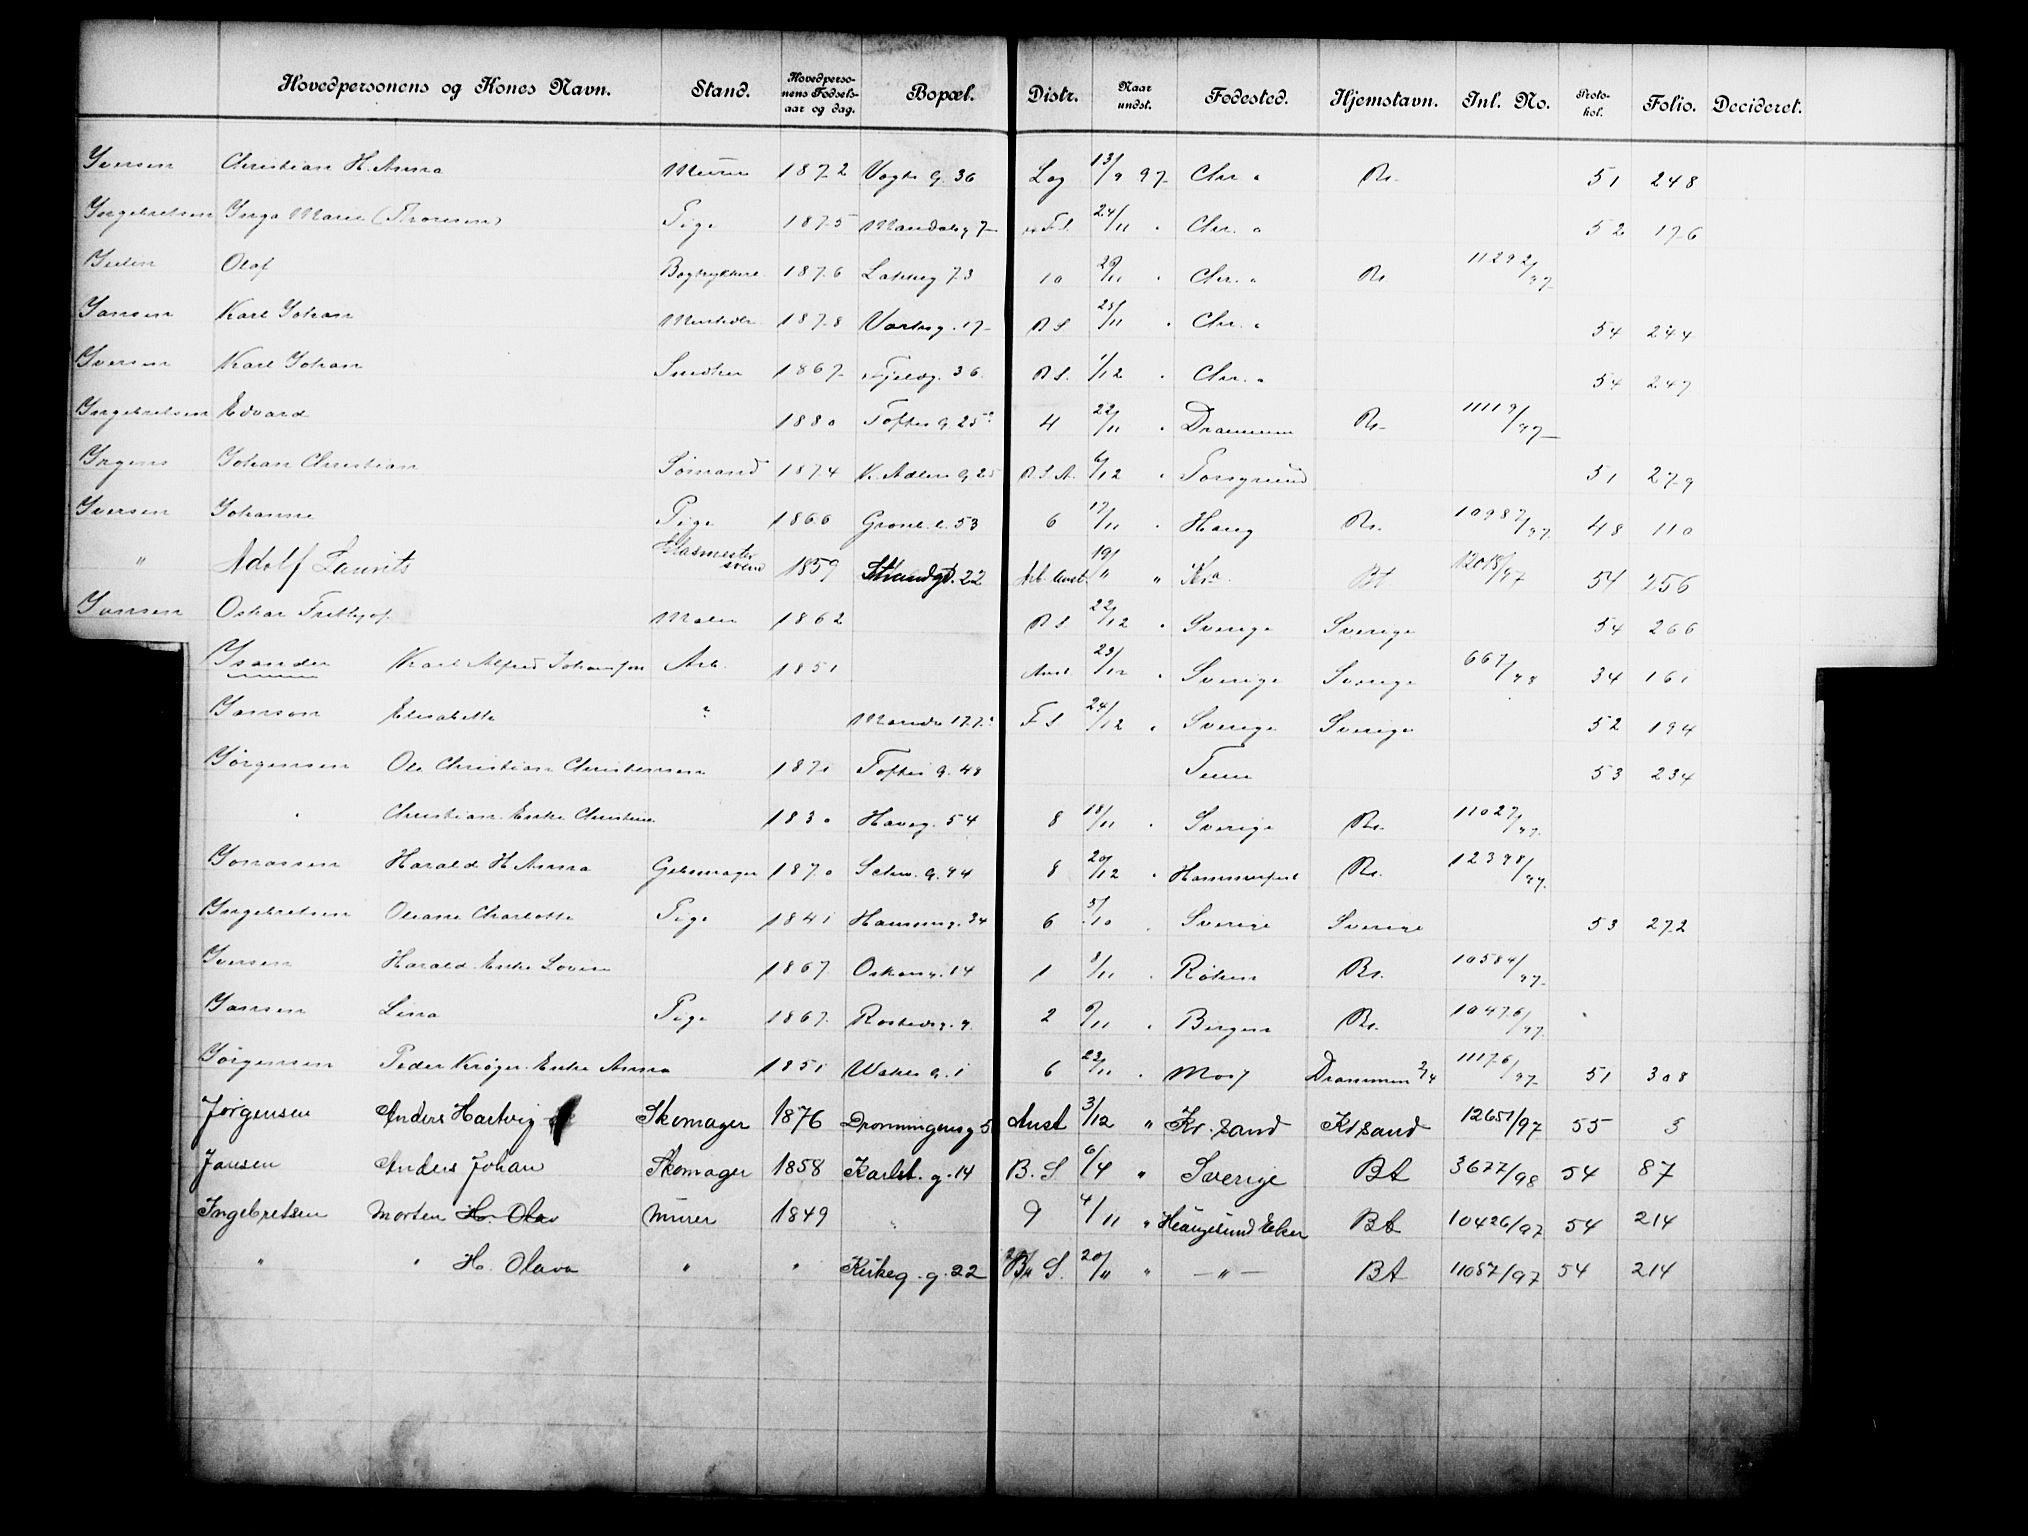 Hovedpersonens og Kones Navn. Stand. Hovedpersonens Fødselsaar og dag. Bopæl. Distr. Naar undst. Fødested. Hjemstavn. Inl. No. Protokol. Folio. Decideret.
Iversen Christian H. Anna Murer 1872 Vogts g. 36 Log 13/9 97 Chr. a Bt. 51 248
Ingebretsen Inga Marie (Thoresen) Pige 1875 Mandalsg 7 F.S. 24/11 " Chr. a 52 176
Olaf 1876 Lakkeg 73 10 29/11 " Chr. a Bt. 11292/97
Jansen Karl Johan 1878 17 B S 25/11 " Chr. a 54 244
Iversen Karl Johan Snedker 1867 36 B S. 1/12 " Chr. a 54 247
Ingebretsen Edvard 1880 Toftes g 25 4 22/11 " Drammen Bt. 11119/97
Irgens Johan Christian Sømand 1874 K. Adlers g. 25 B.S.A. 6/12 " Porsgrund 51 279
Iversen Johanne Pige 1866 Grønl. l. 53 6 17/11 " Haug Bt. 10987/97 48 110
" Adolf Laurits Glasmester svend 1859 Strandgd. 22 Arb. Anst. 19/" " Kra. Bt 12018/97 54 256
Jansen Oskar Frithjof Maler 1862 B S 22/12 " Sverige Sverige 54 266
Isander Karl Alfred Johansson Arb. 1851 Anst 23/12 " Sverige Sverige 667/98 34 161
Janson Elisabeth " F S 24/12 " Sverige Sverige 52 194
Jørgensen Ole Christian Christensen 1871 Toftes g. 48 53 234
" Christian Enke Christine 1830 Haveg. 54 8 18/11 " Sverige Bt. 11027/97
Jonassen Harald H. Anna Gjbsmager 1870 Schw. g. 44 8 20/12 " Hammerfest Bt. 12398/97
Ingebretsen Oleane Charlotte Pige 1841 Hausmg. 34 6 5/10 " Sverige Sverige 53 272
Iversen Harald Enke Lovise 1867 Oskarsg. 14 1 8/11 " Røken Bt. 10584/97
Jansen Lina Pige 1867 Rostedsg. 9 2 9/11 " Bergen Bt. 10476/97
Jørgensen Peder Krøger Enke Anna 1851 g. 1 6 23/11 " Moss Drammen 2/4 11176/97 51 308
Jørgensen Anders Hartvig Skomager 1876 Dronningensg 5 Anst 3/12 " Kr. sand Krsand 12651/97 55 5
Jansen Anders Johan Skomager 1858 Karlst. g. 14 B. S 6/4 " Sverige Bt 3677/98 54 87
Ingebretsen Morten H. Olav Murer 1849 " 9 4/11 " Haugesund Eker Bt 10426/97 54 214
" " H. Olava " " Kirkeg. g. 22 S. 20/11 " — " — Bt 11087/97 54 214